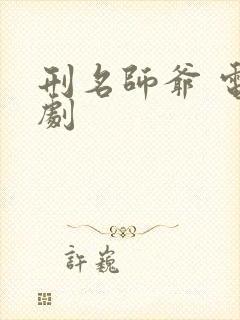 刑名師爺 電
劇
許巍